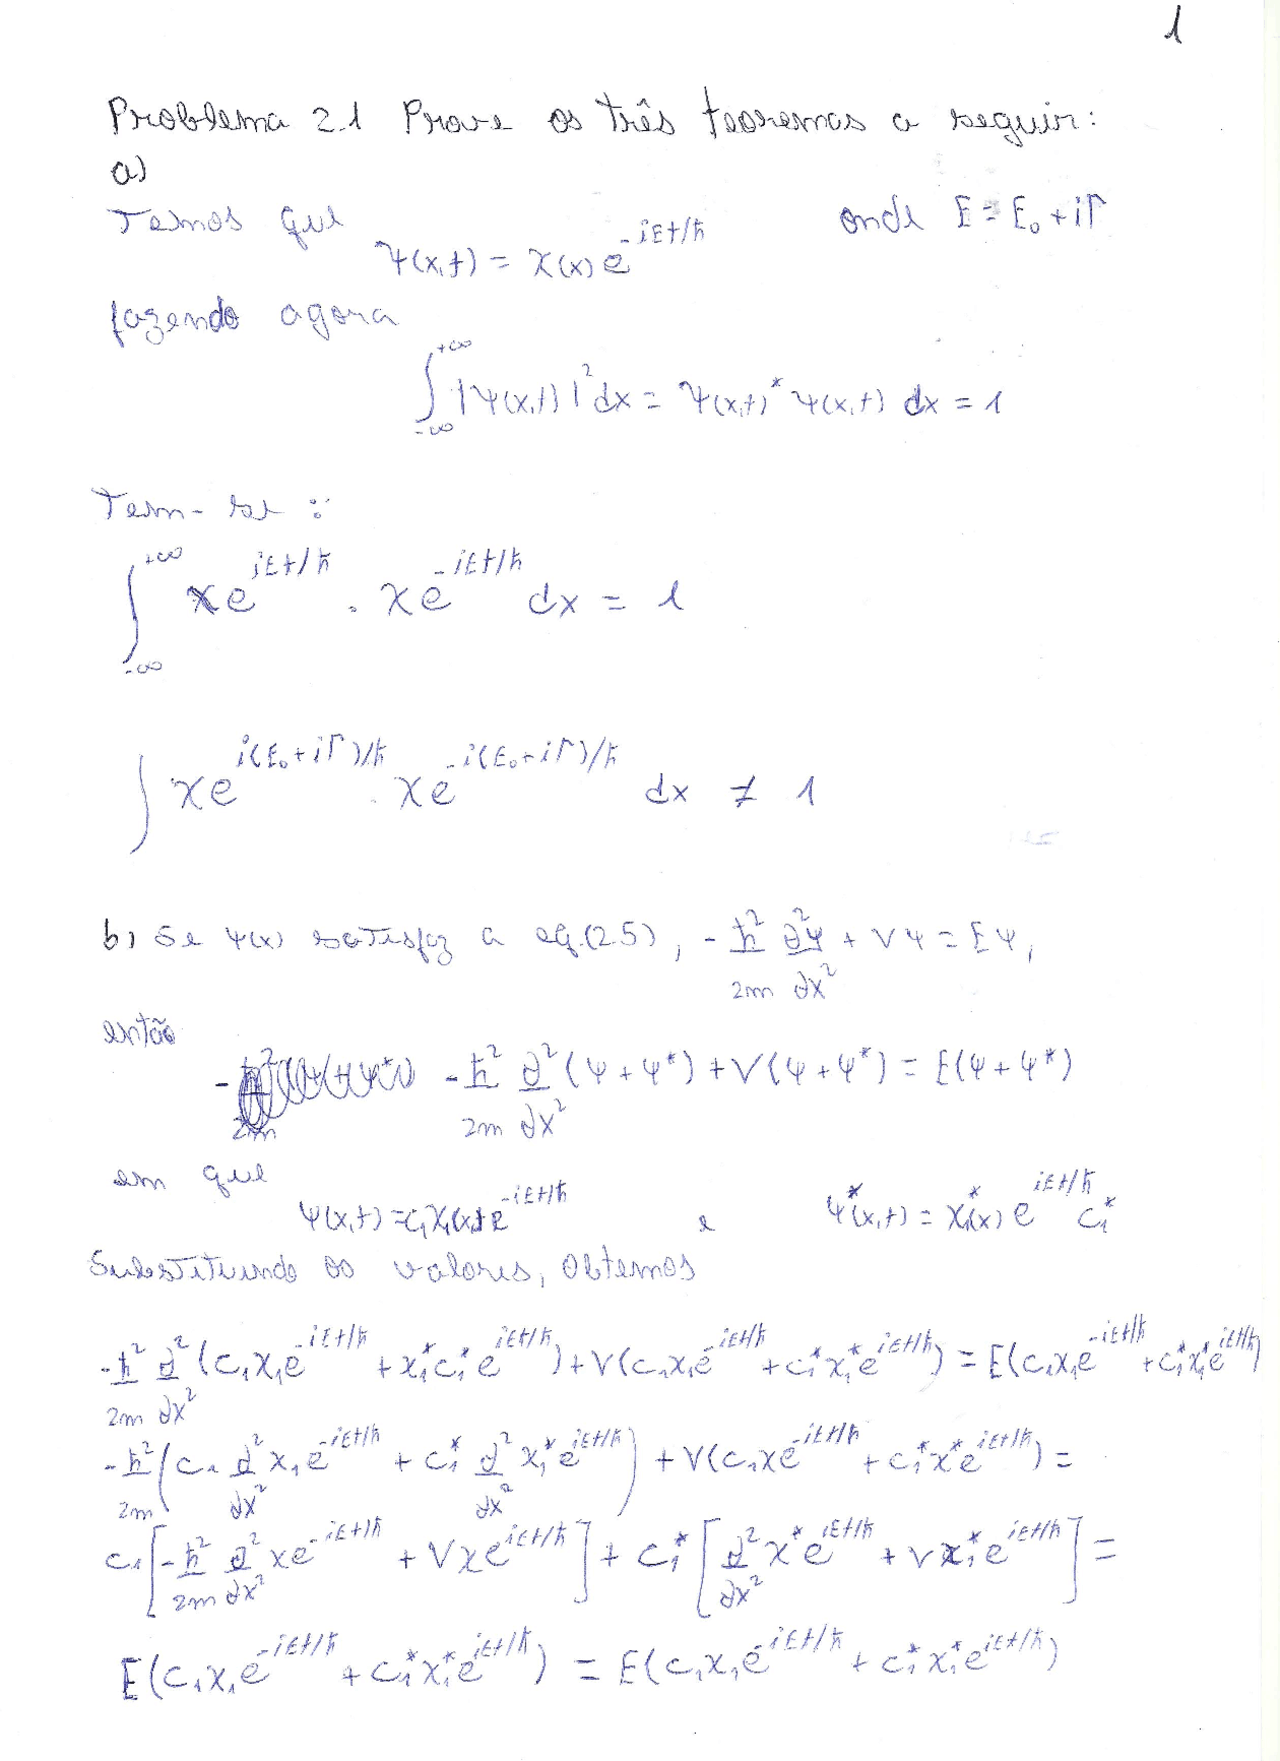 1
Problema 2.1 Prove os três teoremas a seguir:
a)
Temos que Ψ(x,t) = χ(x) e^{-iEt/ħ} onde E = E₀ + iΓ
fazendo agora
∫_{-∞}^{+∞} |Ψ(x,t)|² dx = Ψ(x,t)* Ψ(x,t) dx = 1
Tem-se:
∫_{-∞}^{+∞} χe^{iEt/ħ} . χe^{-iEt/ħ} dx = 1
∫ χe^{i(E₀+iΓ)/ħ} . χe^{-i(E₀+iΓ)/ħ} dx ≠ 1
b) Se ψ(x) satisfaz a eq.(2.5), -ħ²/2m ∂²ψ/∂x² + Vψ = Eψ,
então
-ħ²/2m ∂²/∂x² (ψ + ψ*) + V(ψ + ψ*) = E(ψ + ψ*)
em que
ψ(x,t) = c₁χ₁(x) e^{-iEt/ħ} e ψ*(x,t) = χ₁*(x) e^{iEt/ħ} c₁*
Substituindo os valores, obtemos
-ħ²/2m ∂²/∂x² (c₁χ₁e^{-iEt/ħ} + χ₁*c₁*e^{iEt/ħ}) + V(c₁χ₁e^{-iEt/ħ} + c₁*χ₁*e^{iEt/ħ}) = E(c₁χ₁e^{-iEt/ħ} + c₁*χ₁*e^{iEt/ħ})
-ħ²/2m (c₁ ∂²/∂x² χ₁e^{-iEt/ħ} + c₁* ∂²/∂x² χ₁*e^{iEt/ħ}) + V(c₁χe^{-iEt/ħ} + c₁*χ*e^{iEt/ħ}) =
c₁[-ħ²/2m ∂²/∂x² χe^{-iEt/ħ} + Vχe^{iEt/ħ}] + c₁*[∂²/∂x² χ*e^{iEt/ħ} + Vχ₁*e^{iEt/ħ}] =
E(c₁χ₁e^{-iEt/ħ} + c₁*χ₁*e^{iEt/ħ}) = E(c₁χ₁e^{-iEt/ħ} + c₁*χ₁*e^{iEt/ħ})